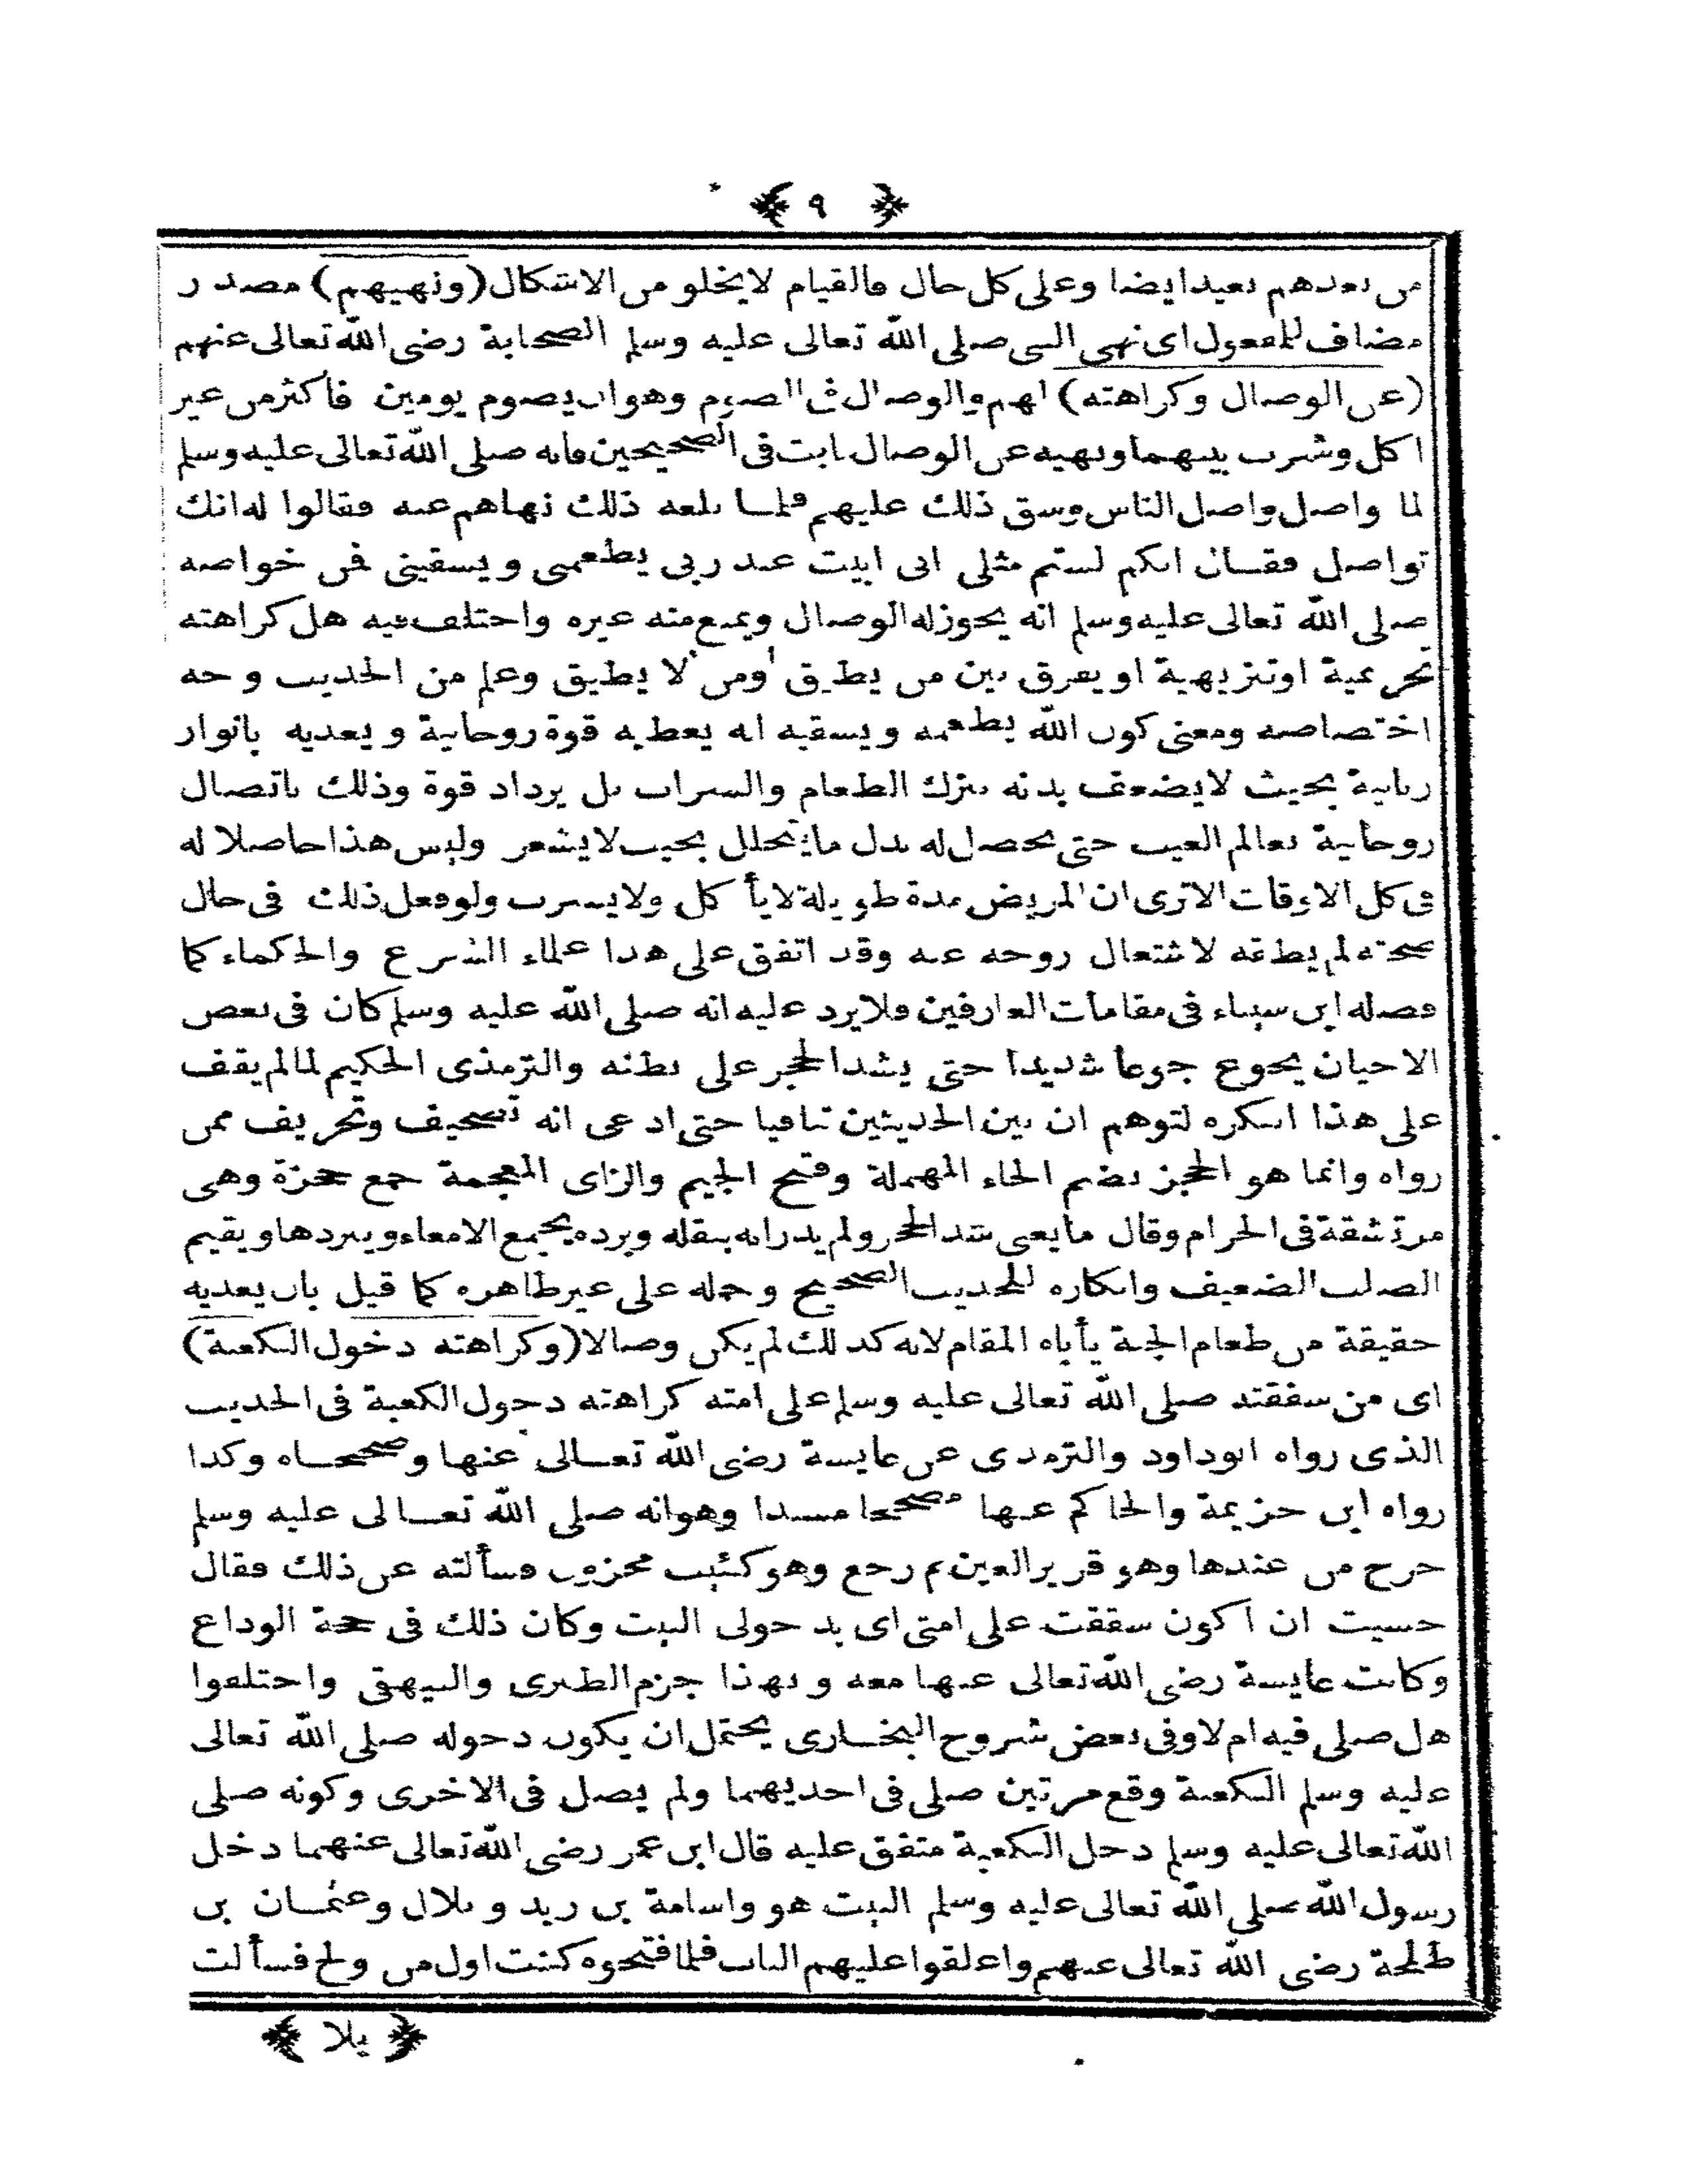 ﴿ ٩ ﴾
من بعدهم بعيد ايضا وعلى كل حال فالقيام لا يخلو من الاشكال (ونهيهم) مصدر
مضاف للمفعول اى نهى النبى صلى الله تعالى عليه وسلم الصحابة رضى الله تعالى عنهم
(عن الوصال وكراهته) لهم والوصال فى الصوم وهو ان يصوم يومين فأكثر من غير
اكل وشرب بينهما ونهيه عن الوصال ثابت فى الصحيحين فانه صلى الله تعالى عليه وسلم
لما واصل واصل الناس وشق ذلك عليهم فلما بلغه ذلك نهاهم عنه فقالوا له انك
تواصل فقال انكم لستم مثلى انى ابيت عند ربى يطعمنى ويسقينى فمن خواصه
صلى الله تعالى عليه وسلم انه يجوز له الوصال ويمنع منه غيره واختلف فيه هل كراهته
تحريمية او تنزيهية او يفرق بين من يطيق ومن لا يطيق وعلم من الحديث وجه
اختصاصه ومعنى كون الله يطعمه ويسقيه انه يعطيه قوة روحانية ويغذيه بانوار
ربانية بحيث لا يضعف بدنه بترك الطعام والشراب بل يزداد قوة وذلك باتصال
روحانية بعالم الغيب حتى يحصل له بدل ما يتحلل بحيث لا يشعر وليس هذا حاصلا له
فى كل الاوقات الا ترى ان المريض مدة طويلة لا يأكل ولا يشرب ولو فعل ذلك فى حال
صحته لم يطقه لاشتغال روحه عنه وقد اتفق على هذا علماء الشرع والحكماء كما
فصله ابن سيناء فى مقامات العارفين فلا يرد عليه انه صلى الله عليه وسلم كان فى بعض
الاحيان يجوع جوعا شديدا حتى يشد الحجر على بطنه والترمذى الحكيم لما لم يقف
على هذا انكره لتوهم ان بين الحديثين تنافيا حتى ادعى انه تصحيف وتحريف ممن
رواه وانما هو الحجز بضم الحاء المهملة وفتح الجيم والزاى المعجمة جمع حجزة وهى
مرتشقة فى الحرام وقال ما يغنى شد الحجر ولم يدر انه بثقله وبرده يجمع الامعاء ويبردها ويقيم
الصلب الضعيف وانكاره للحديث الصحيح وحمله على غير ظاهره كما قيل بان يغذيه
حقيقة من طعام الجنة يأباه المقام لانه كذلك لم يكن وصالا (وكراهته دخول الكعبة)
اى من شفقته صلى الله تعالى عليه وسلم على امته كراهته دخول الكعبة فى الحديث
الذى رواه ابو داود والترمذى عن عايشة رضى الله تعالى عنها وصححاه وكذا
رواه ابن خزيمة والحاكم عنها مصححا مسندا وهو انه صلى الله تعالى عليه وسلم
خرج من عندها وهو قرير العين ثم رجع وهو كئيب محزون فسألته عن ذلك فقال
خشيت ان اكون شققت على امتى اى بدخولى البيت وكان ذلك فى حجة الوداع
وكانت عايشة رضى الله تعالى عنها معه وبهذا جزم الطبرى والبيهقى واختلفوا
هل صلى فيه ام لا وفى بعض شروح البخارى يحتمل ان يكون دخوله صلى الله تعالى
عليه وسلم الكعبة وقع مرتين صلى فى احديهما ولم يصل فى الاخرى وكونه صلى
الله تعالى عليه وسلم دخل الكعبة متفق عليه قال ابن عمر رضى الله تعالى عنهما دخل
رسول الله صلى الله تعالى عليه وسلم البيت هو واسامة بن زيد وبلال وعثمان بن
طلحة رضى الله تعالى عنهم واغلقوا عليهم الباب فلما فتحوه كنت اول من ولج فسألت
﴿ بلا ﴾